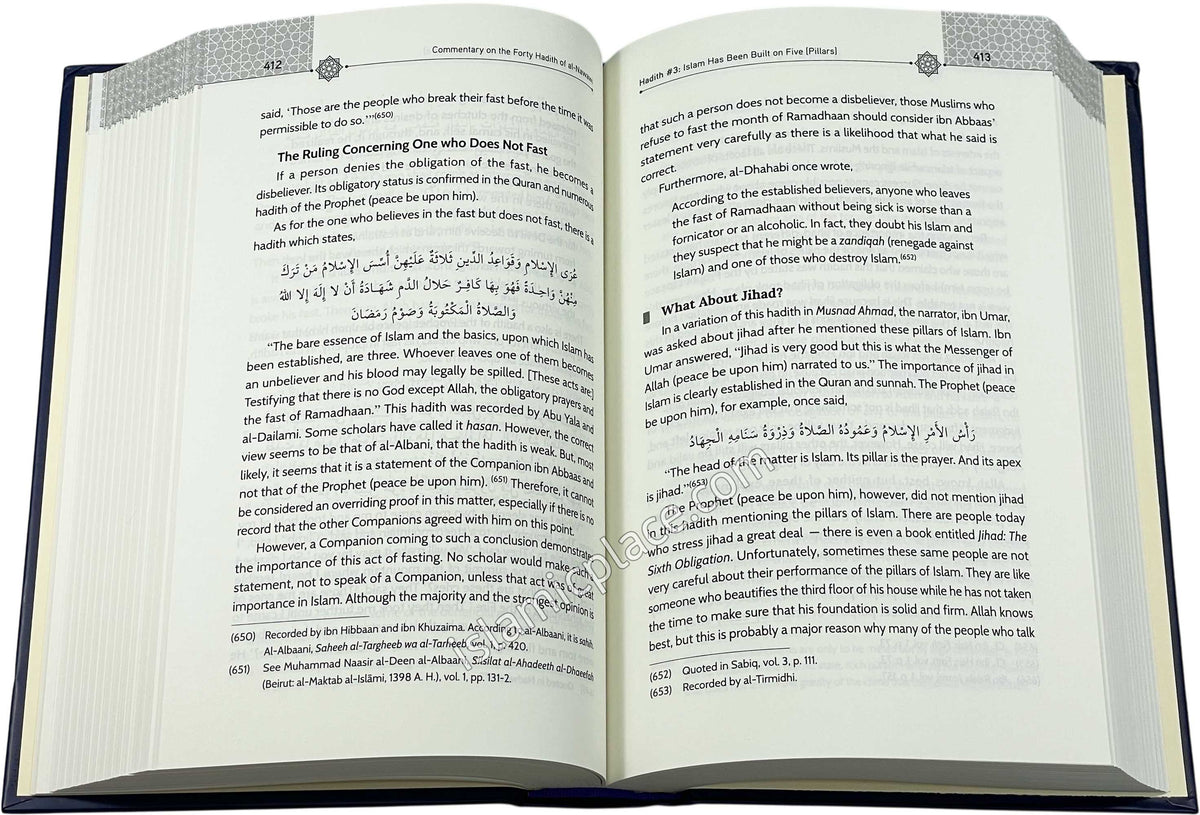 412
Commentary on the Forty Hadith of al-Nawawi
said, ‘Those are the people who break their fast before the time it was
permissible to do so.’”(650)
The Ruling Concerning One who Does Not Fast
If a person denies the obligation of the fast, he becomes a
disbeliever. Its obligatory status is confirmed in the Quran and numerous
hadith of the Prophet (peace be upon him).
As for the one who believes in the fast but does not fast, there is a
hadith which states,
عُرَى الإِسْلَامِ وَقَوَاعِدُ الدِّينِ ثَلَاثَةٌ عَلَيْهِنَّ أُسِّسَ الإِسْلَامُ مَنْ تَرَكَ
مِنْهُنَّ وَاحِدَةً فَهُوَ بِهَا كَافِرٌ حَلَالُ الدَّمِ شَهَادَةُ أَنْ لَا إِلَهَ إِلا اللهُ
وَالصَّلَاةُ الْمَكْتُوبَةُ وَصَوْمُ رَمَضَانَ
“The bare essence of Islam and the basics, upon which Islam has
been established, are three. Whoever leaves one of them becomes
an unbeliever and his blood may legally be spilled. [These acts are]
Testifying that there is no God except Allah, the obligatory prayers and
the fast of Ramadhaan.” This hadith was recorded by Abu Yala and
al-Dailami. Some scholars have called it hasan. However, the correct
view seems to be that of al-Albani, that the hadith is weak. But, most
likely, it seems that it is a statement of the Companion ibn Abbaas and
not that of the Prophet (peace be upon him). (651) Therefore, it cannot
be considered an overriding proof in this matter, especially if there is no
record that the other Companions agreed with him on this point.
However, a Companion coming to such a conclusion demonstrates
the importance of this act of fasting. No scholar would make such a
statement, not to speak of a Companion, unless that act was of great
importance in Islam. Although the majority and the strongest opinion is
(650) Recorded by ibn Hibbaan and ibn Khuzaima. According to al-Albaani, it is sahih.
Al-Albaani, Saheeh al-Targheeb wa al-Tarheeb, vol. 1, p. 420.
(651) See Muhammad Naasir al-Deen al-Albaani, Silsilat al-Ahadeeth al-Dhaeefah
(Beirut: al-Maktab al-Islāmi, 1398 A. H.), vol. 1, pp. 131-2.
Hadith #3: Islam Has Been Built on Five [Pillars]
413
that such a person does not become a disbeliever, those Muslims who
refuse to fast the month of Ramadhaan should consider ibn Abbaas’
statement very carefully as there is a likelihood that what he said is
correct.
Furthermore, al-Dhahabi once wrote,
According to the established believers, anyone who leaves
the fast of Ramadhaan without being sick is worse than a
fornicator or an alcoholic. In fact, they doubt his Islam and
they suspect that he might be a zandiqah (renegade against
Islam) and one of those who destroy Islam.(652)
What About Jihad?
In a variation of this hadith in Musnad Ahmad, the narrator, ibn Umar,
was asked about jihad after he mentioned these pillars of Islam. Ibn
Umar answered, “Jihad is very good but this is what the Messenger of
Allah (peace be upon him) narrated to us.” The importance of jihad in
Islam is clearly established in the Quran and sunnah. The Prophet (peace
be upon him), for example, once said,
رَأْسُ الأَمْرِ الإِسْلَامُ وَعَمُودُهُ الصَّلَاةُ وَذِرْوَةُ سَنَامِهِ الْجِهَادُ
“The head of the matter is Islam. Its pillar is the prayer. And its apex
is jihad.”(653)
The Prophet (peace be upon him), however, did not mention jihad
in this hadith mentioning the pillars of Islam. There are people today
who stress jihad a great deal — there is even a book entitled Jihad: The
Sixth Obligation. Unfortunately, sometimes these same people are not
very careful about their performance of the pillars of Islam. They are like
someone who beautifies the third floor of his house while he has not taken
the time to make sure that his foundation is solid and firm. Allah knows
best, but this is probably a major reason why many of the people who talk
(652) Quoted in Sabiq, vol. 3, p. 111.
(653) Recorded by al-Tirmidhi.
islamicplace.com